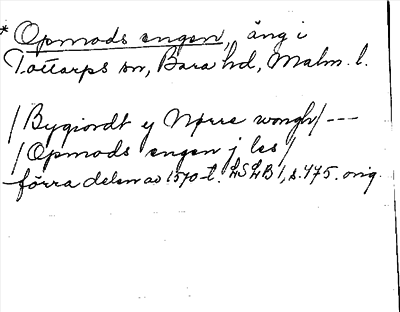 * Opmods engen, äng i
Tottarps sn, Bara hd, Malm. l.
/Bygiordt ej Nørre wongh/ ---
/Opmods engen j les/
förra delen av 1570-t. LSLB 1, s. 475. orig.